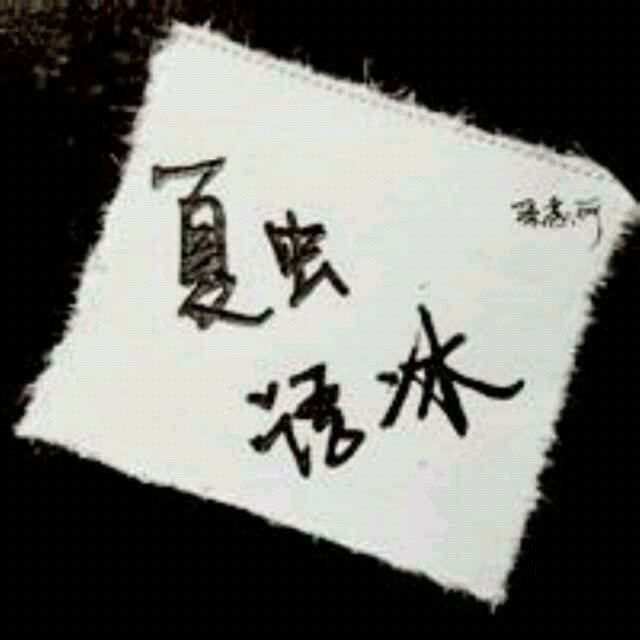 夏虫
语冰